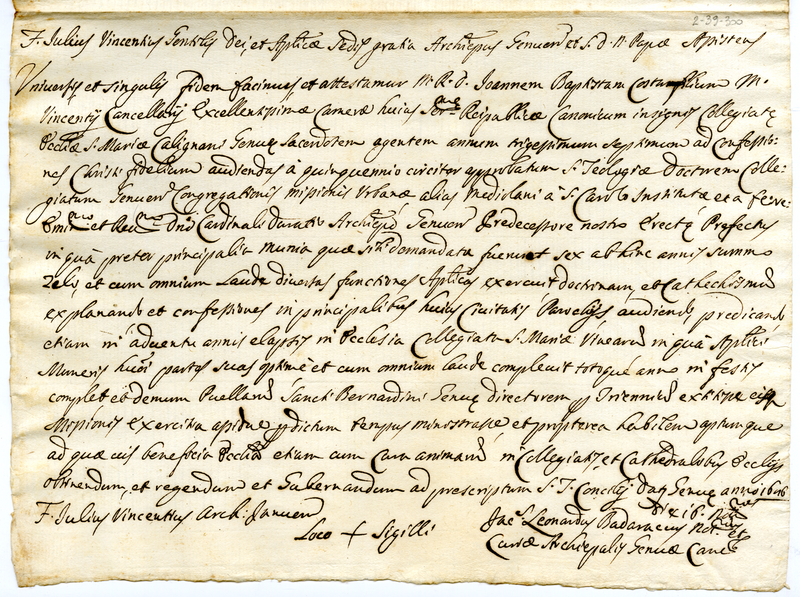 2-39-300
F. Julius Vincentius Gentilis Dei, et Aplicæ Sedis gratia Archiepus Genuen et S. d. N. Papæ Assistens
Universis et singulis fidem facimus et attestamur M. R. D. Joannem Baptistam M.
Vincentij Cancellarij Excellentissimæ Cameræ huius Ser.me Reipublicæ Canonicum insignis Collegiatę
Eccliæ S. Mariæ Calignani Genuę sacerdotem agentem annum trigesimum septimum ad Confessio-
nes Christi fidelium audiendas à quinquennio circiter approbatum S. Teologiæ Doctorem Colle-
giatum Genuen Congregationis missionis Urbanæ alias Mediolani à S. Carolo Institutæ et a
Emin.mo et Reu.mo Dno Cardinali Duratio Archiepo Genuen Predecessore nostro Erectę Prefectus
in quà preter principalia munia quæ sibi demandata fuerunt sex ab hinc annis summo
Zelo, et cum omnium Laude diversas functiones Aplicas exercuit doctrinam, et Cathechismum
explanando et confessiones in principalibus huius Civitatis Parochijs audiendo, predicando
etiam in adventu annis elapsis in Ecclesia Collegiata S. Mariæ Vinearum in quà Aplici
Muneris huiusmodi partes suas optimè et cum omnium laude complevit totoque anno in festis
complet et demum Puellarum Sancti Bernardini Genuę directorem p Triennium extitisse
Missionis exercitia assidue p dictum tempus ministrasse et propterea habilem aptumque
ad quæ cũs beneficia Ecclia etiam cum Cura animarum in Collegiatis, et Cathedralibus Ecclijs
obtinendum, et regendum et Gubernandum ad prescriptum S. T. Concilij Dat Genuę anno
F. Julius Vincentius Arch: Januen
Loco + Sigilli
Jac.s Leonardus Badaraccus Not. et
Curiæ Archiepalis Genuæ Canc